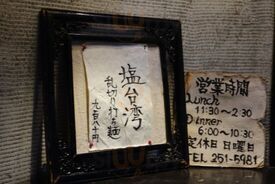 塩台湾
乱切り打ち麺
九百八十円
営業時間
Lunch
11:30〜2:30
Dinner
6:00〜10:30
定休日 日曜日
TEL 251-5981